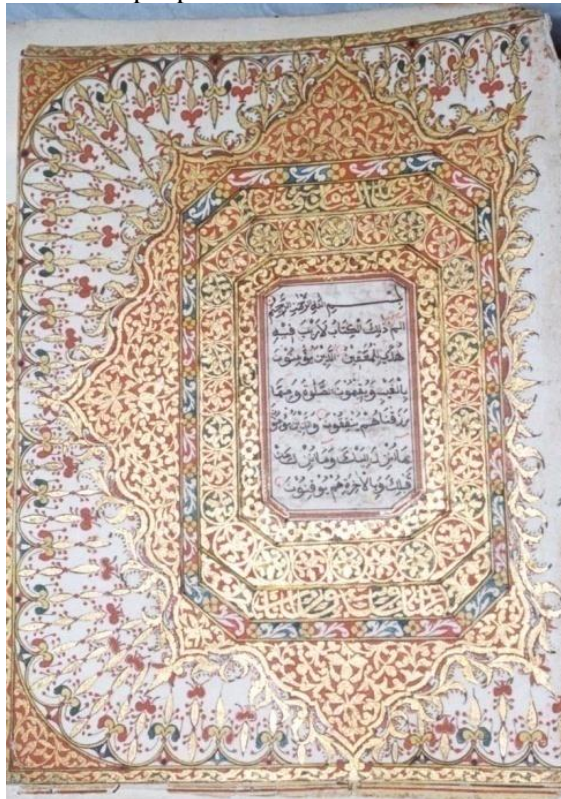 بسم الله الرحمن الرحيم
الم ذلك الكتاب لا ريب فيه
هدى للمتقين الذين يؤمنون
بالغيب ويقيمون الصلوة ومما
رزقناهم ينفقون والذين يؤمنون
بما انزل اليك وما انزل من
قبلك وبالاخرة هم يوقنون